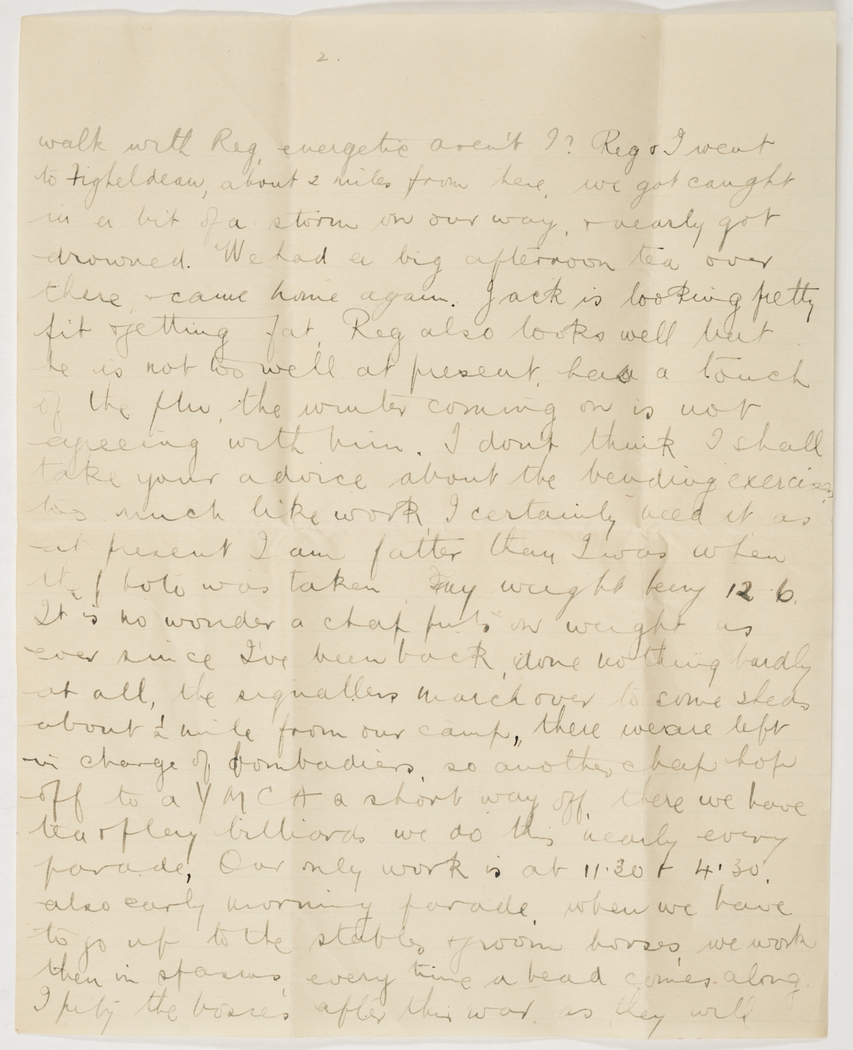 2.
walk with Reg, energetic aren't I? Reg & I went
to Figheldean, about 2 miles from here, we got caught
in a bit of a storm on our way, & nearly got
drowned. We had a big afternoon tea over
there, & came home again. Jack is looking pretty
fit & getting fat, Reg also looks well but
he is not too well at present, has a touch
of the flu, the winter coming on is not
agreeing with him. I don't think I shall
take your advice about the bending exercises
too much like work, I certainly need it as
at present I am fatter than I was when
the photo was taken, my weight being 12.6.
It is no wonder a chap puts on weight as
ever since I've been back, done nothing hardly
at all, the signallers march over to some sheds
about ½ mile from our camp, there we are left
in charge of bombadiers, so another chap hop
off to a Y M C A a short way off, there we have
tea & play billiards we do this nearly every
parade, Our only work is at 11.30 & 4.30,
also early morning parade, when we have
to go up to the stables & groom horses, we work
then in spasms, every time a head comes along.
I pity the bosses after this war, as they will